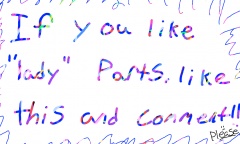 If you like
"lady" Parts. like
this and comment!!
Please